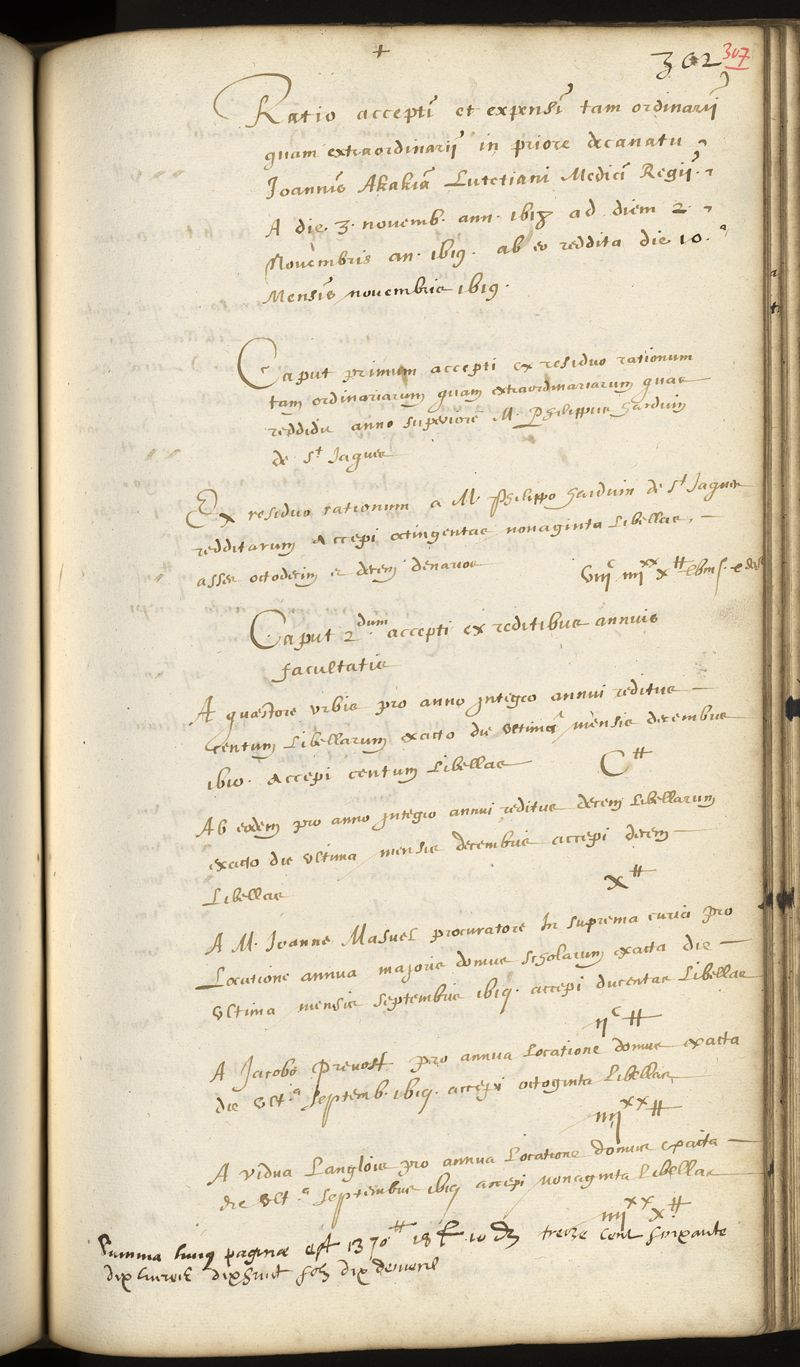 +
302 307
Ratio accepti et expensi tam ordinarij
quam extraordinarij in priore decanatu
Ioannis Akakia Lutetiani Medici Regij.
A die 3. novemb. ann. 1618 ad diem 2.
Novembris an. 1619. ab eo reddita die 10.a
Mensis novembris 1619.
Caput primum accepti ex residuo rationum
tam ordinariarum quam extraordinariarum quas
reddidit anno superiore M. Philippus Harduin
de St Jaques
Ex residuo rationum a M. Philippo Harduin de St Jaques
redditarum accepi octingentas nonaginta libellas,
asses octodecim et decem denarios
viiic iiiixx x ₶
Caput 2dum accepti ex reditibus annuis
facultatis
A quæstore urbis pro anno integro annui reditus
centum libellarum exacto die ultima mensis decembris
1610. accepi centum libellas C₶
Ab eodem pro anno integro annui reditus decem libellarum
exacto die ultima mensis decembris accepi decem
Libellas x₶
A M. Ioanne Masuel procuratore In suprema curia pro
Locatione annua majoris domus scholarum exacta die
ultima mensis septembris 1619. accepi ducentas Libellas
iic ₶
A Jacobo Prevost pro annua Locatione domus exacta
die ult.a septemb. 1619. accepi octoginta Libellas
iiiixx ₶
A vidua Langlois pro annua Locatione domus exacta
die ult.a septembris 1619 accepi nonaginta Libellas
iiiixx x ₶
Summa huius paginæ est 1370₶ 18 s 10 d treize cent soixante
dix livres dixhuit solz dix deniers